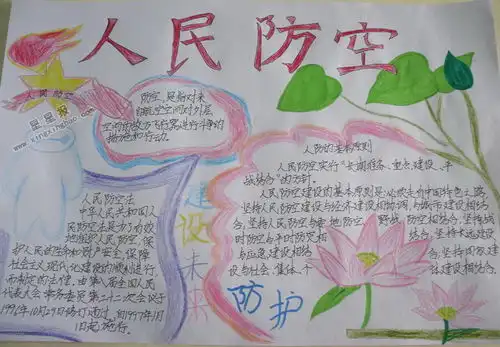 人民防空
人民防空
星星报
xingxingbao.com
防空，是指对来
自航空空间或外层
空间的敌方飞行器进行斗争的
措施和行动。
人民防空法
中华人民共和国人
民防空法是为了有效
地组织人民防空，保
护人民的生命和财产安全，保障
社会主义现代化建设的顺利进行
而制定的法律，由第八届全国人民
代表大会常务委员第二十二次会议于
1996年10月29日修订通过，自1997年1月
1日起施行。
建设未来
防护
人防的未来原则
人民防空实行“长期准备、重点建设、平
战结合”的方针。
人民防空建设的基本原则是：必须走中国特色之路，
坚持人民防空建设与经济建设相协调，与城市建设相结
合，坚持人民防空与要地防空、野战防空相结合，坚持战
时防空与平时防灾相结合，坚持长远建设
与应急建设相结合，坚持国家建
设与社会、集体、个体建设相结合。